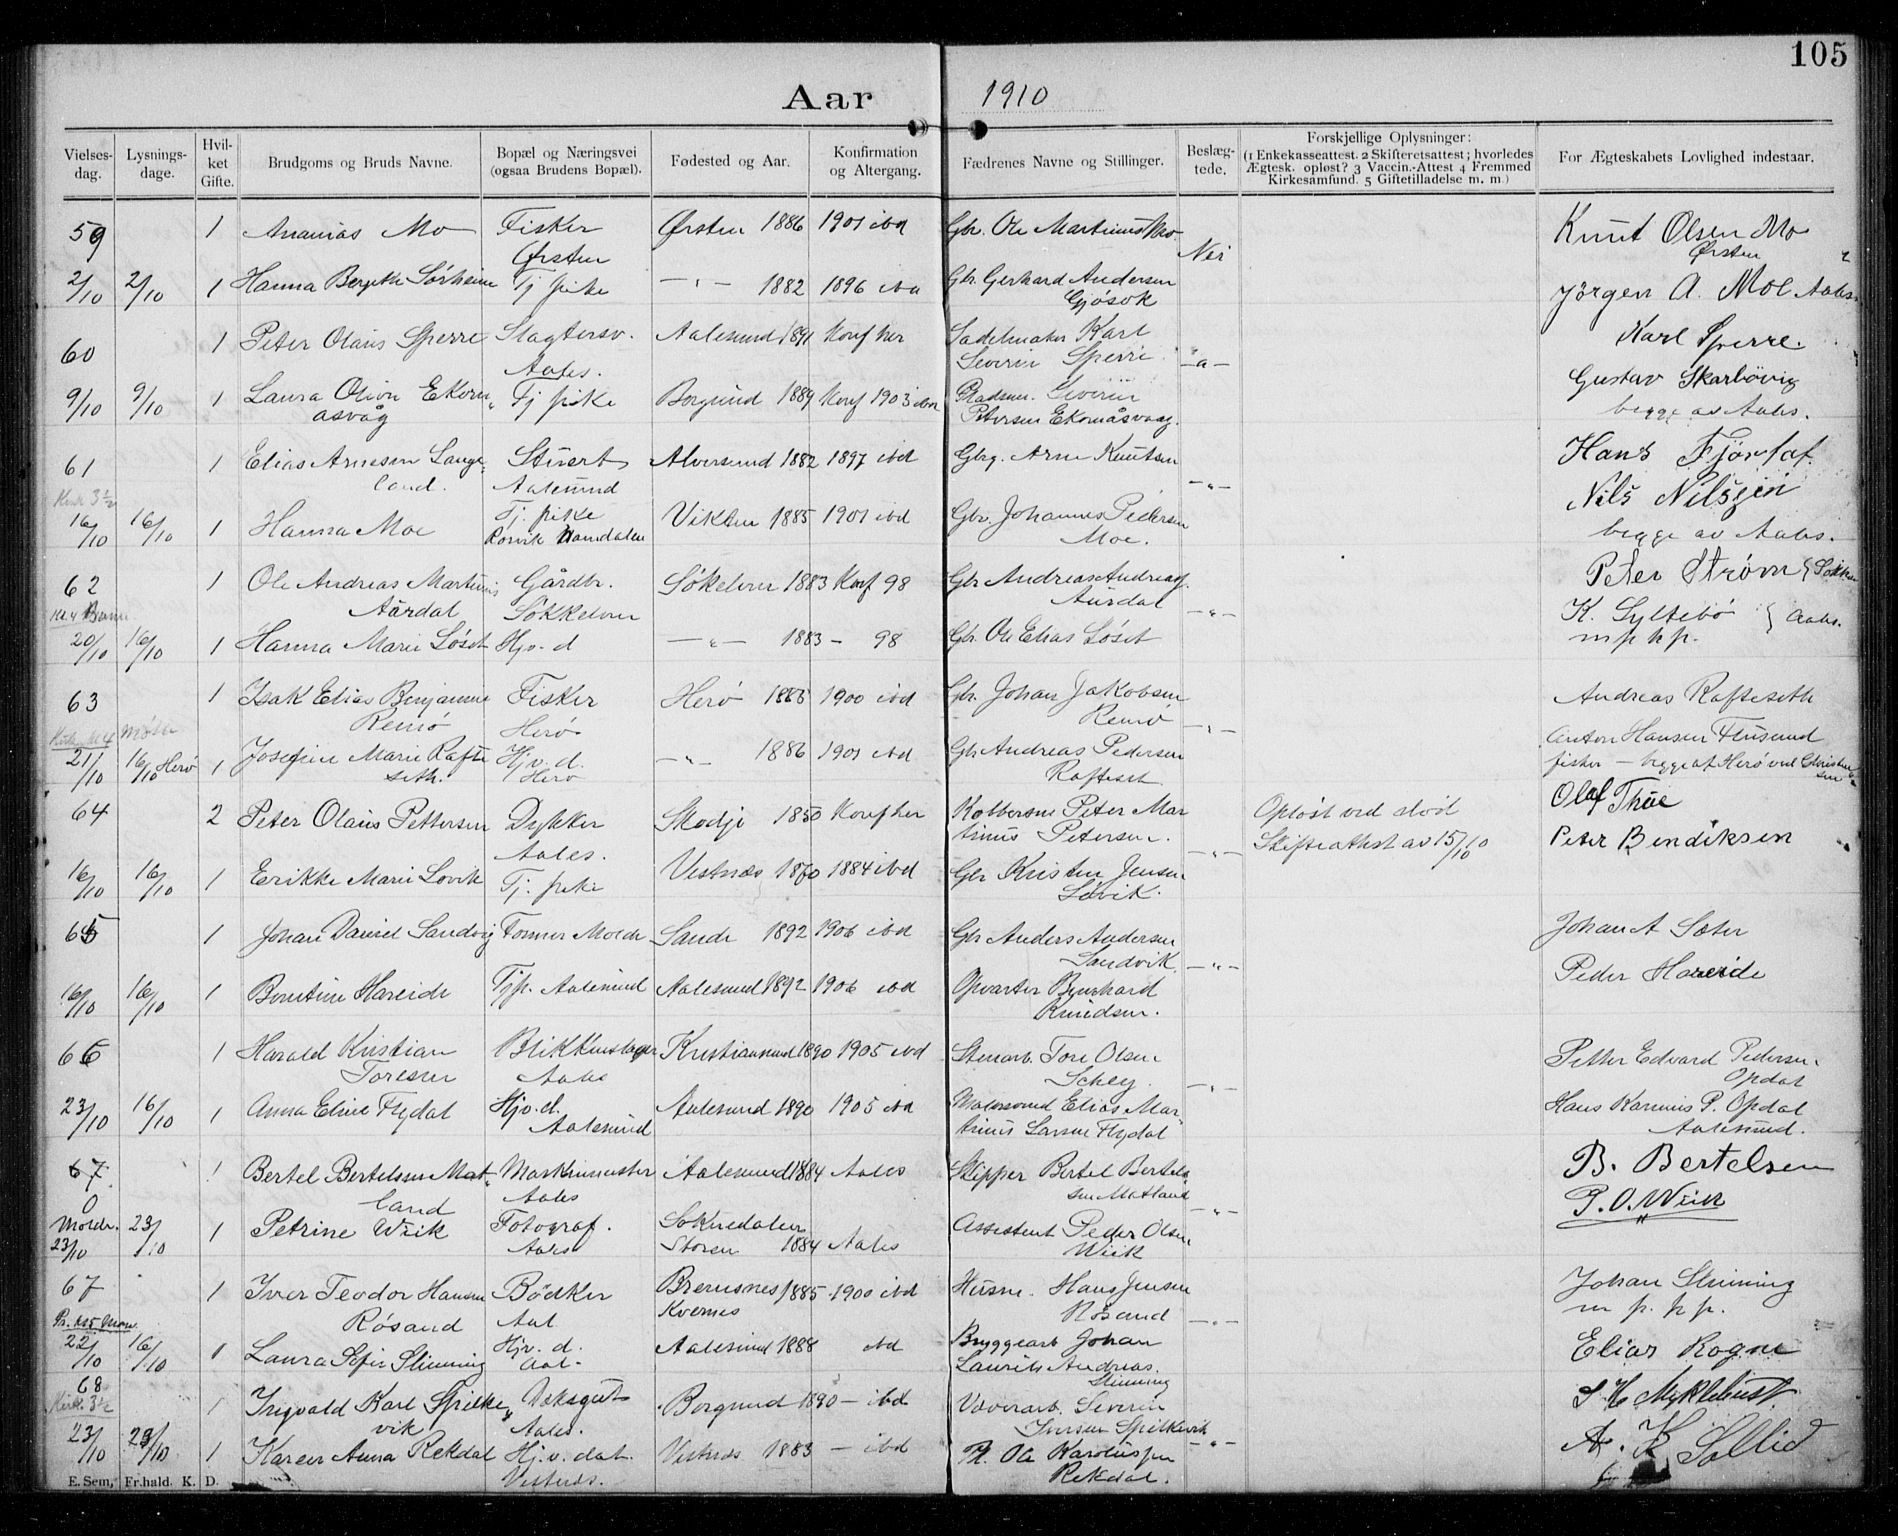 105
Aar 1910
Vielses-dag. Lysnings-dage. Hvil-ket Gifte. Brudgoms og Bruds Navne. Bopæl og Næringsvei (ogsaa Brudens Bopæl). Fødested og Aar. Konfirmation og Altergang. Fædrenes Navne og Stillinger. Beslæg-tede. Forskjellige Oplysninger: (1 Enkekasseattest. 2 Skifteretsattest; hvorledes Ægtesk. opløst? 3 Vaccin.-Attest 4 Fremmed Kirkesamfund. 5 Giftetilladelse m. m.) For Ægteskabets Lovlighed indestaar.
59 1 Ananias Mo Fisker Ørsten 1886 1901 ibd Gbr. Ole Martinus Mo Knut Olsen Mo
Ørsten Nei Ørsten
2/10 2/10 1 Hanna Sørheim Tj pike — " — 1882 1896 ibd Gbr. Gerhard Andersen Gjøsok Jörgen A. Moe Aales.
60 1 Peter Olaus Sperre Slagtersv. Aalesund 1891 Konf her Sadelmaker Karl Karl Sperre.
Aales. Severin Sperre — " —
9/10 9/10 1 Laura Olivie Ekorn- Tj pike Borgund 1889 Konf 1903 ibd Severin Gustav Skarbövig
asvåg Petersen Ekornåsvaag. begge av Aales.
61 1 Elias Arnesen Lange- Stuert Alversund 1882 1897 ibd Gbrg. Arne Knutsen Hans Fjörtof.
land. Aalesund — " — Nils Nilsen
Kirk 3 1/2 Tj. pike
16/10 16/10 1 Hanna Moe Rørvik Namdalen Vikten 1885 1901 ibd Gbr. Johannes Pedersen Moe. begge av Aales.
62 1 Ole Andreas Martinus Gårdbr. Søkelven 1883 Konf 98 Gbr Andreas Andreas. Peter Strøm
Aårdal Søkkelven Aurdal — " — K. Syltebö } Aales.
20/10 16/10 1 Hanna Marie Løset Hjv. d — " — 1883 — 98 Gbr. Ole Elias Løset m p h p.
63 1 Isak Elias Benjamin Fisker Herø 1885 1900 ibd Gbr. Johan Jakobsen Andreas Rafteseth
Remø Herø Remø — " — Anton Hansen Flusund
21/10 16/10 Herø 1 Josefine Marie Rafte Hjv. d. — " — 1886 1901 ibd Gbr Andreas Pedersen fisker — begge af Herø
seth. Herø Rafteset
64 2 Peter Olaus Pettersen Dykker Skodje 1850 Konf her Kobbersm Peter Mar Opløst ved död Olaf Thue
Aales. tinus Petersen. — " — Skifteattest av 15/10 10 Peter Bendiksen
16/10 16/10 1 Erikke Marie Lovik Tj. pike Vestnæs 1860 1884 ibd Gbr Kristen Jensen
Lovik.
65 1 Johan Daniel Sandvig Former Molde Sande 1892 1906 ibd Gbr Anders Andersen Johan A Sæter
Sandvik — " — Peder Hareide
16/10 16/10 1 Berntine Hareide Tjp. Aalesund Aalesund 1892 1906 ibd Opvarter Bernhard
Knudsen.
66 1 Harald Kristian Blikkenslager Kristiansund 1890 1905 ibd Stenarb. Tore Olsen Petter Edvard Pedersen
Toresen Aales — " — Opdal
23/10 16/10 1 Anna Eline Flydal Hjv. d. Aalesund Aalesund 1890 1905 ibd Malersvend Elias Mar Hans Karinius P. Opdal
tinus Larsen Flydal Aalesund.
67 1 Bertel Bertelsen Mat- Maskinmester Aalesund 1884 Aales Skipper Bertel Bertel- B. Bertelsen
land Aales sen Matland P. O. Wiik
Molde. 23/10 23/10 1 Petrine Wiik Fotograf. Aales Soknedalen Støren 1884 Aales Assistent Peder Olsen — " —
Wiik
67 1 Iver Teodor Hansen Bødker Bremsnes 1885 1900 ibd Husm. Hans Jensen Johan Slinning
Røsand Aal Kvernes Røsand — " — m p. h p.
22/10 16/10 1 Laura Sofie Slinning Hjv. d. Aal- Aalesund 1888 ibd Bryggearb Johan Elias Rogne
Laurits Andreas Slinning
68 1 Ingvald Karl Spilke- Dæksgut Borgund 1890 — ibd Væverarb. Severin S K Myklebust
Kirk. 3 1/2 vik Aales. Iversen Spilkevik
23/10 23/10 1 Karen Anna Rekdal Hjv. dat. Vestnæs 1883 — ibd Ole Karolus Rekdal. — " — A. K Sollid
Vestnæs.
E. Sem, Fr.hald. K. D.